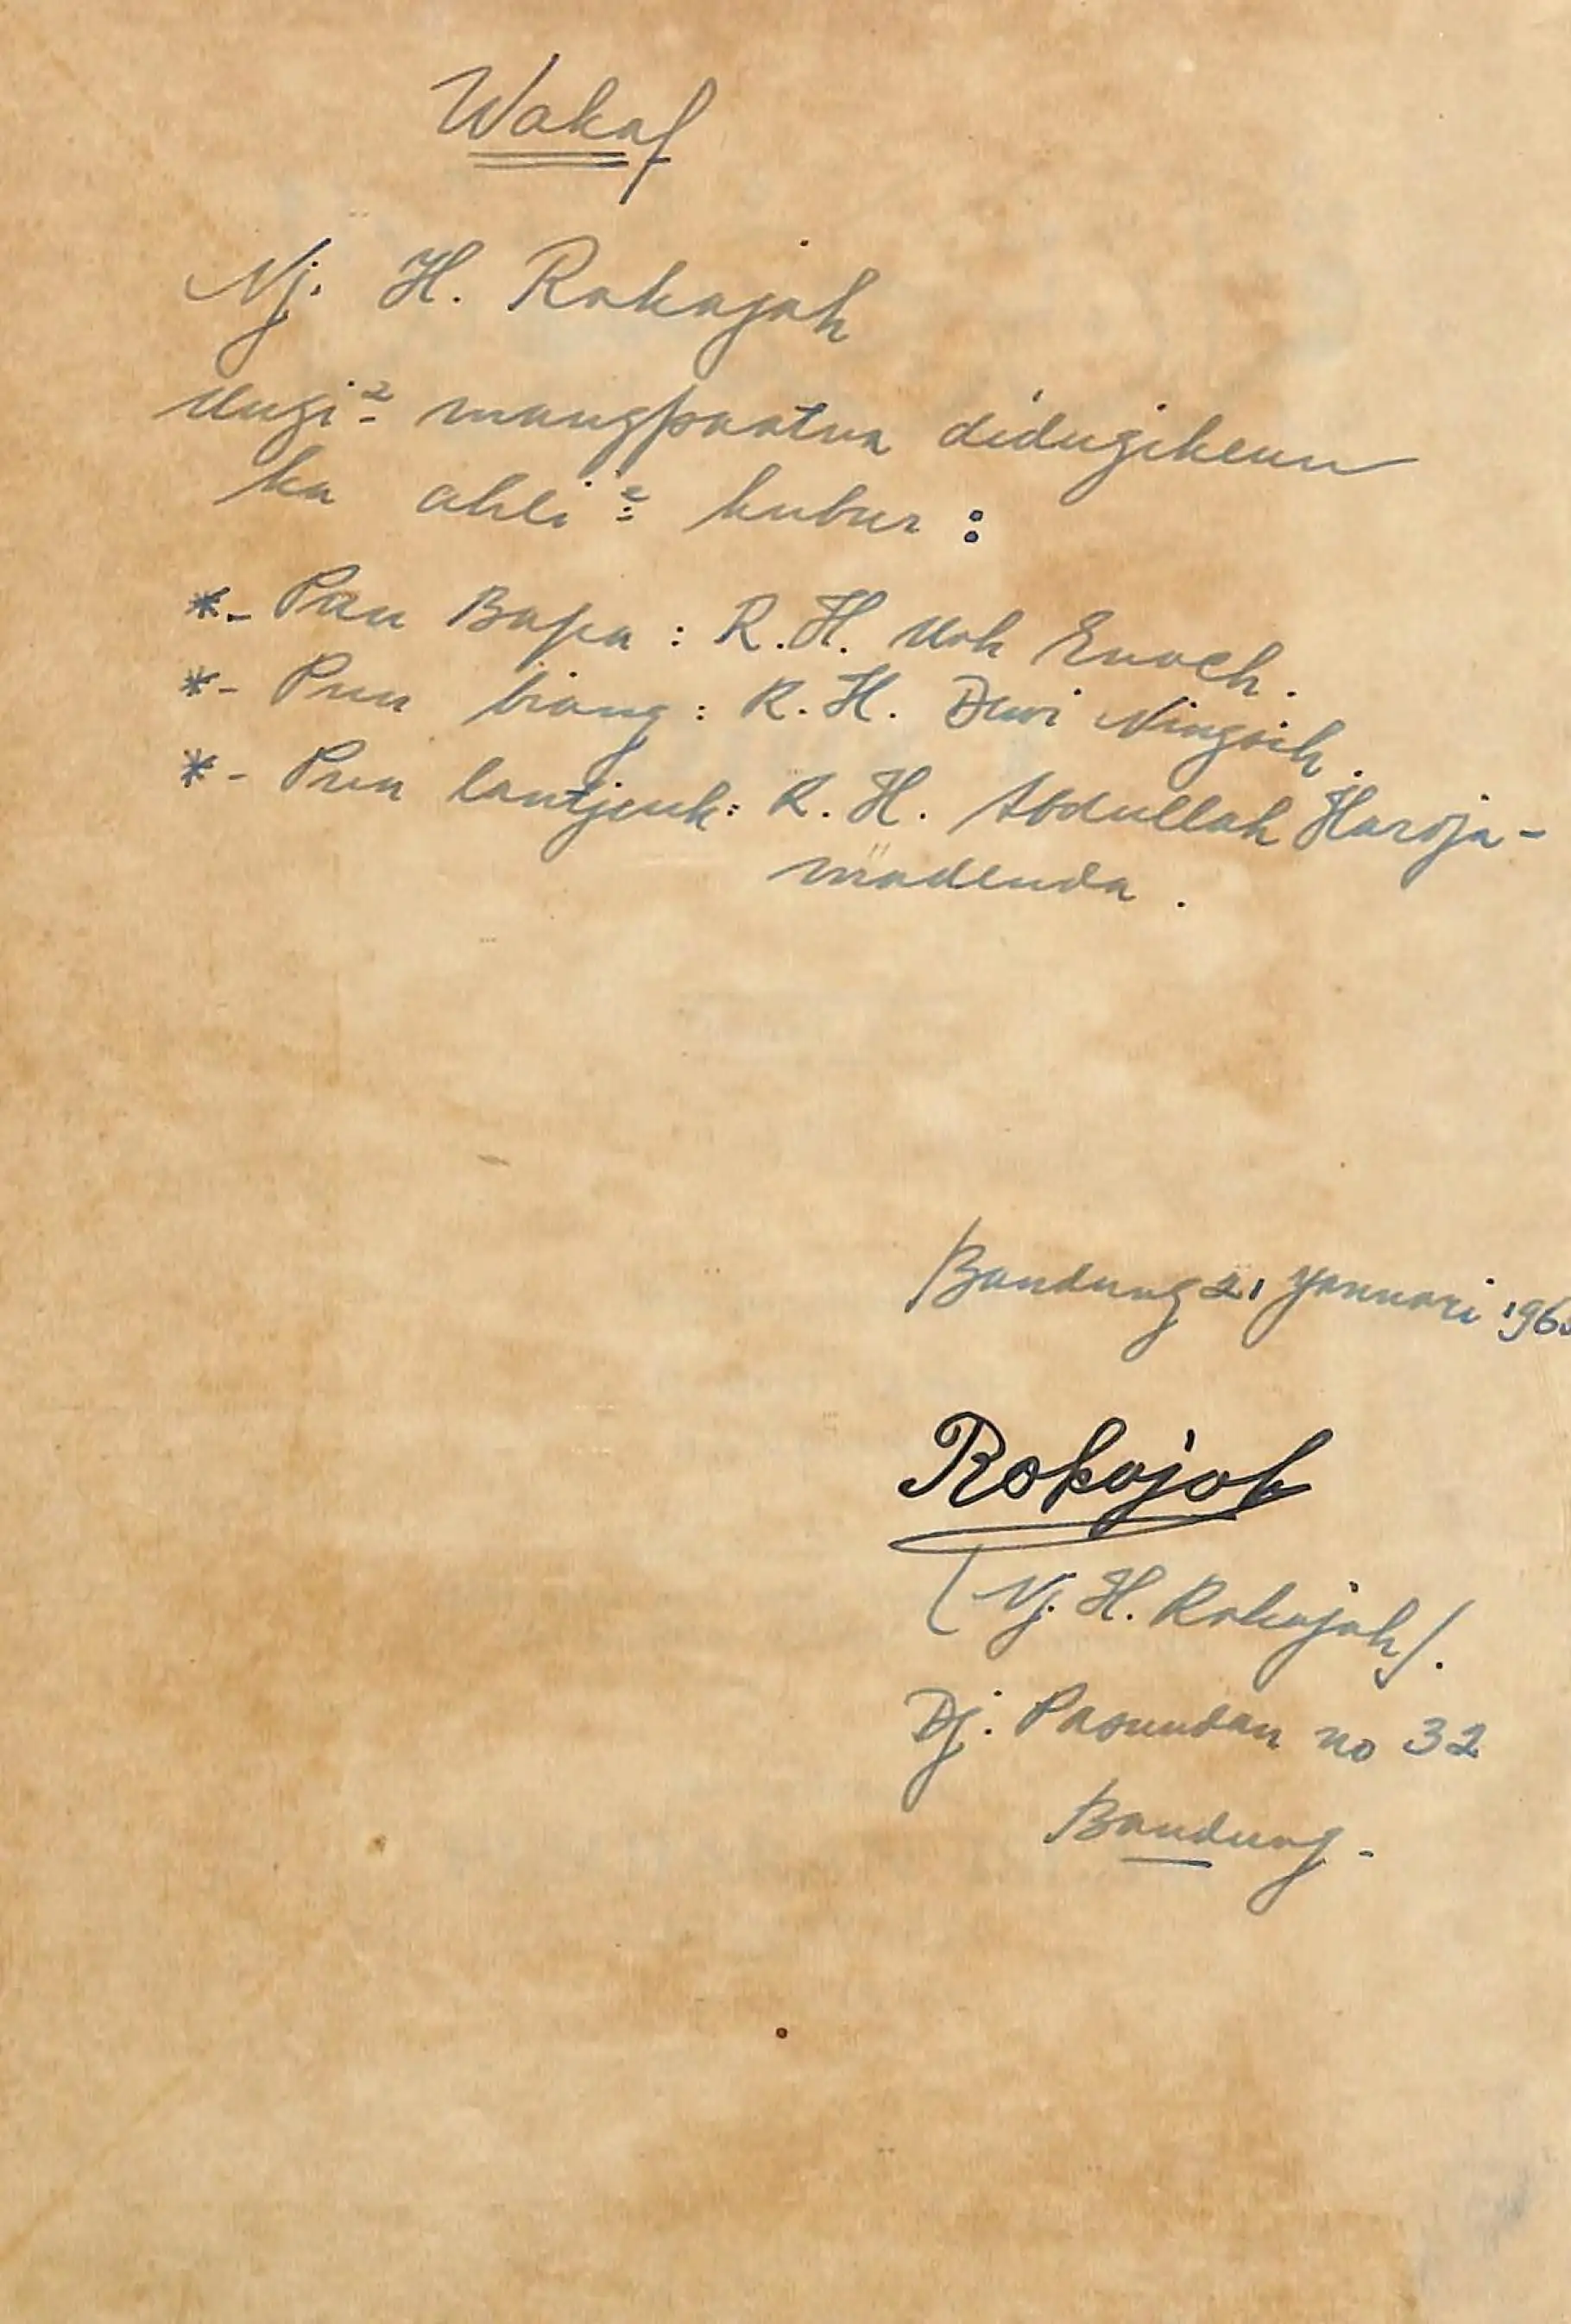 Wakaf
Nj. H. Rokajah
Mugi² mangpaatna didugikeun
ka ahli² kubur :
*- Pun Bapa : R.H. Moh Enoch.
*- Pun biang : R.H. Dewi Ningsih.
*- Pun lantjeuk : R.H. Abdullah Hardja-
madenda.
Bandung 21 Januari 196
Rokajah
(Nj. H. Rokajah).
Dj. Pasundan no 32
Bandung.